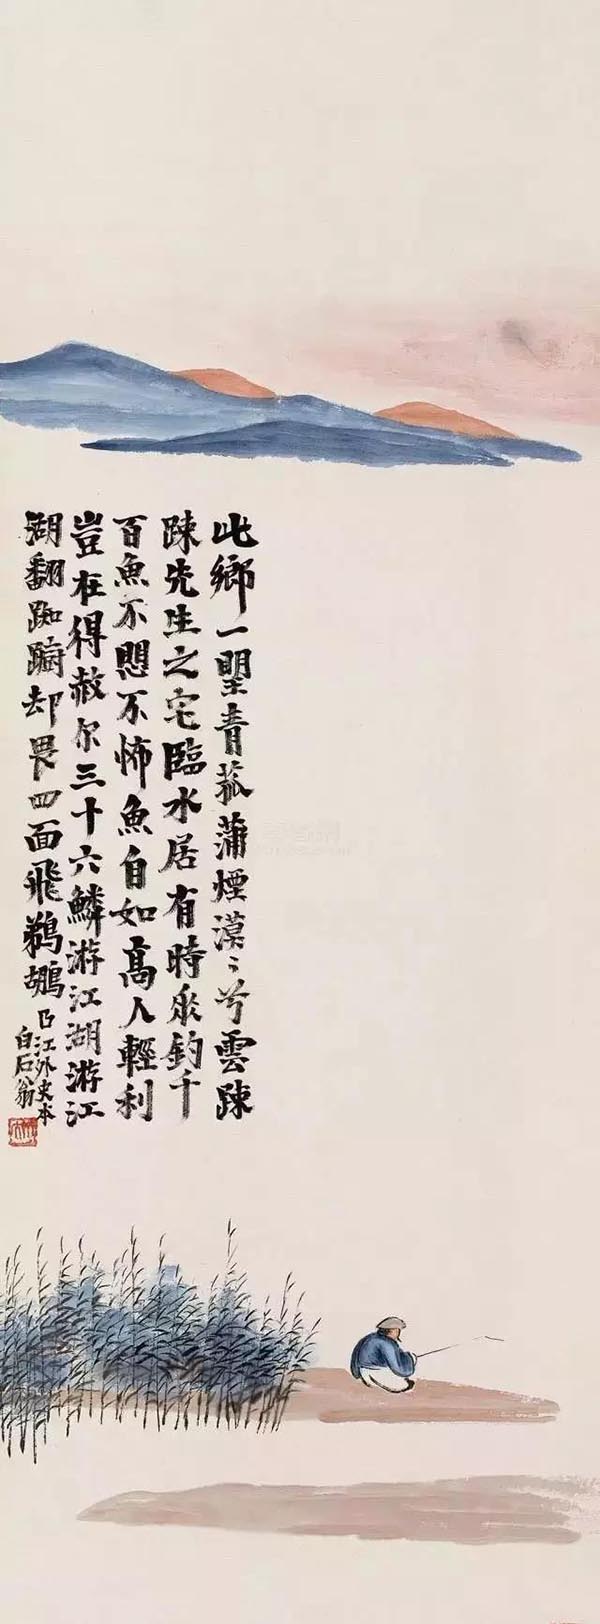 此鄉一望青菰蒲煙漠〻兮雲踈
踈先生之宅臨水居有時垂釣千
百魚不愳不怖魚自如高人輕利
豈在得赦尔三十六鱗游江湖游江
湖翻踟躕却畏四面飛鵜鶘
江外史本
白石翁